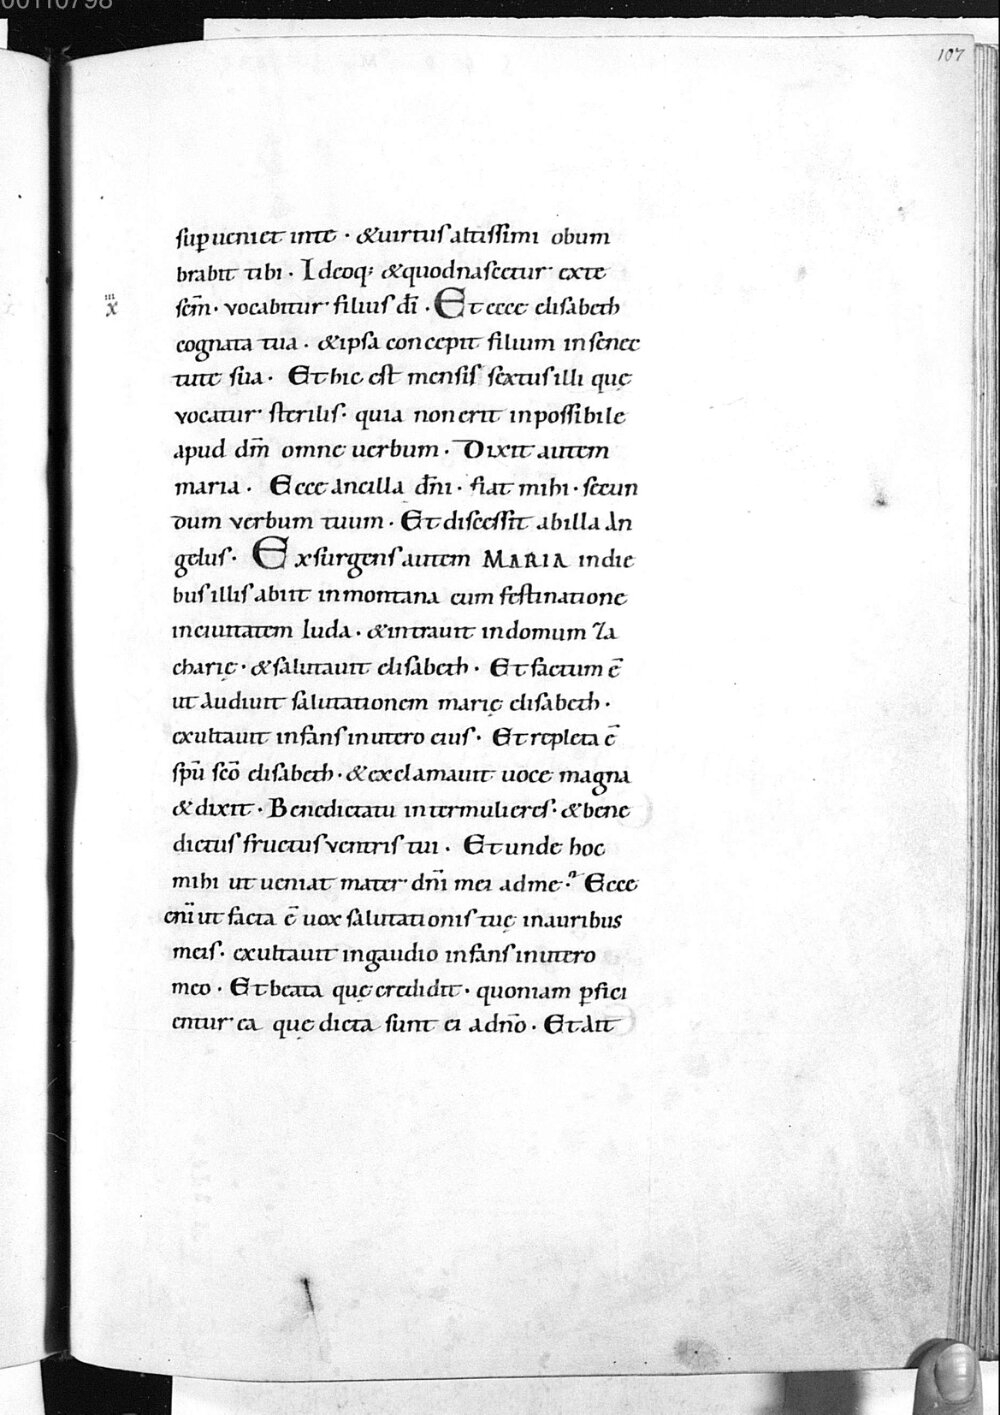 00110798
107
sup̱ueniet inte · &uirtus altissimi obum
brabit tibi · Ideoq; &quodnascetur exte
iii
x
scm̄ · vocabitur filius dī · Et ecce elisabeth
cognata tua · &ipsa concepit filium insenec
tute sua · Ethic est mensis sextus illi quę
vocatur sterilis · quia nonerit inpossibile
apud dm̄ omne uerbum · Dixit autem
maria · Ecce ancilla dn̄i · fiat mihi · secun
dum verbum tuum · Etdiscessit abilla An
gelus · Exsurgens autem MARIA indie
bus illis abiit inmontana cum festinatione
inciuitatem Iuda · &intrauit indomum Za
charię · &salutauit elisabeth · Etfactum ē
ut Audiuit salutationem marię elisabeth ·
exultauit infans inutero eius · Etrepleta ē
spū scō elisabeth · &exclamauit uoce magna
&dixit · Benedictatu intermulieres · &bene
dictus fructus ventris tui · Etunde hoc
mihi ut ueniat mater dn̄i mei adme ? Ecce
eni̅ ut facta ē uox salutationis tuę inauribus
meis · exultauit ingaudio infans inutero
meo · Etbeata quę credidit · quoniam p̱fici
entur ea quę dicta sunt ei adn̄o · EtAit